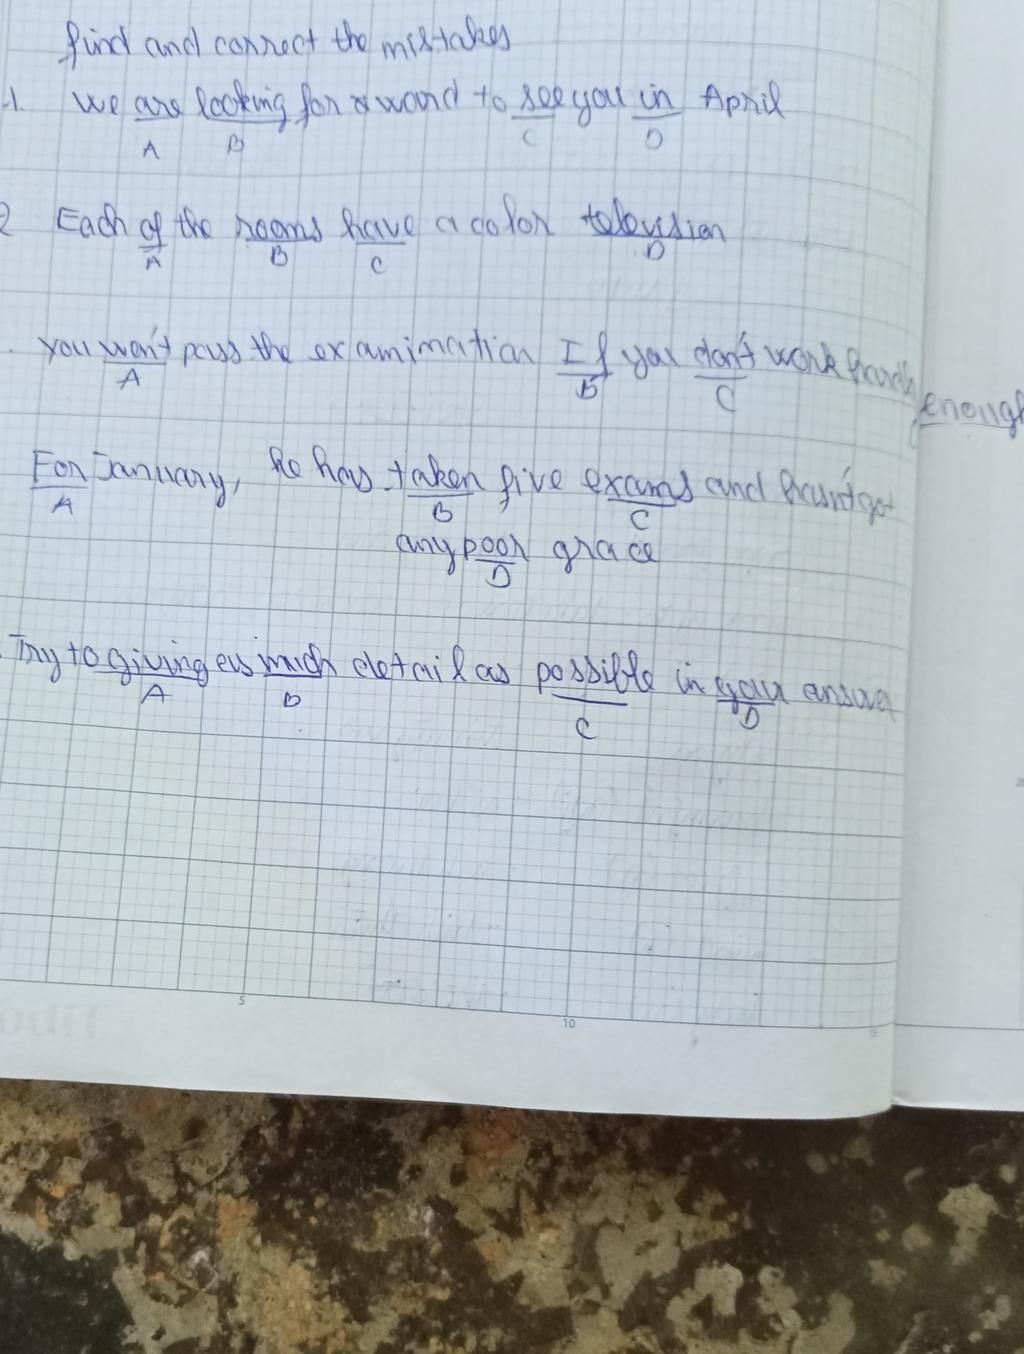 find and correct the mistakes
1. We are looking forward to see you in April
A B C D
2 Each of the rooms have a color television
A B C D
. you won't pass the examimation If you don't work enough
A B C
For January, he has taken five exams and hasn't got
A B C
any poor grace
D
Try to giving as much detail as possible in your answer
A B C D
5 10